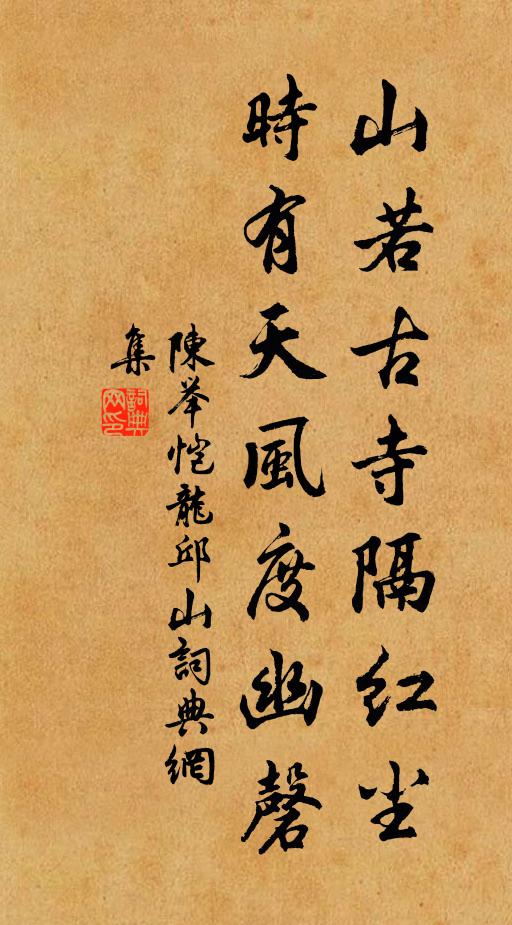 山若古寺隔红尘
時有天風度幽磬
陳举恺龍邱山詞典網
集
詞典
网印